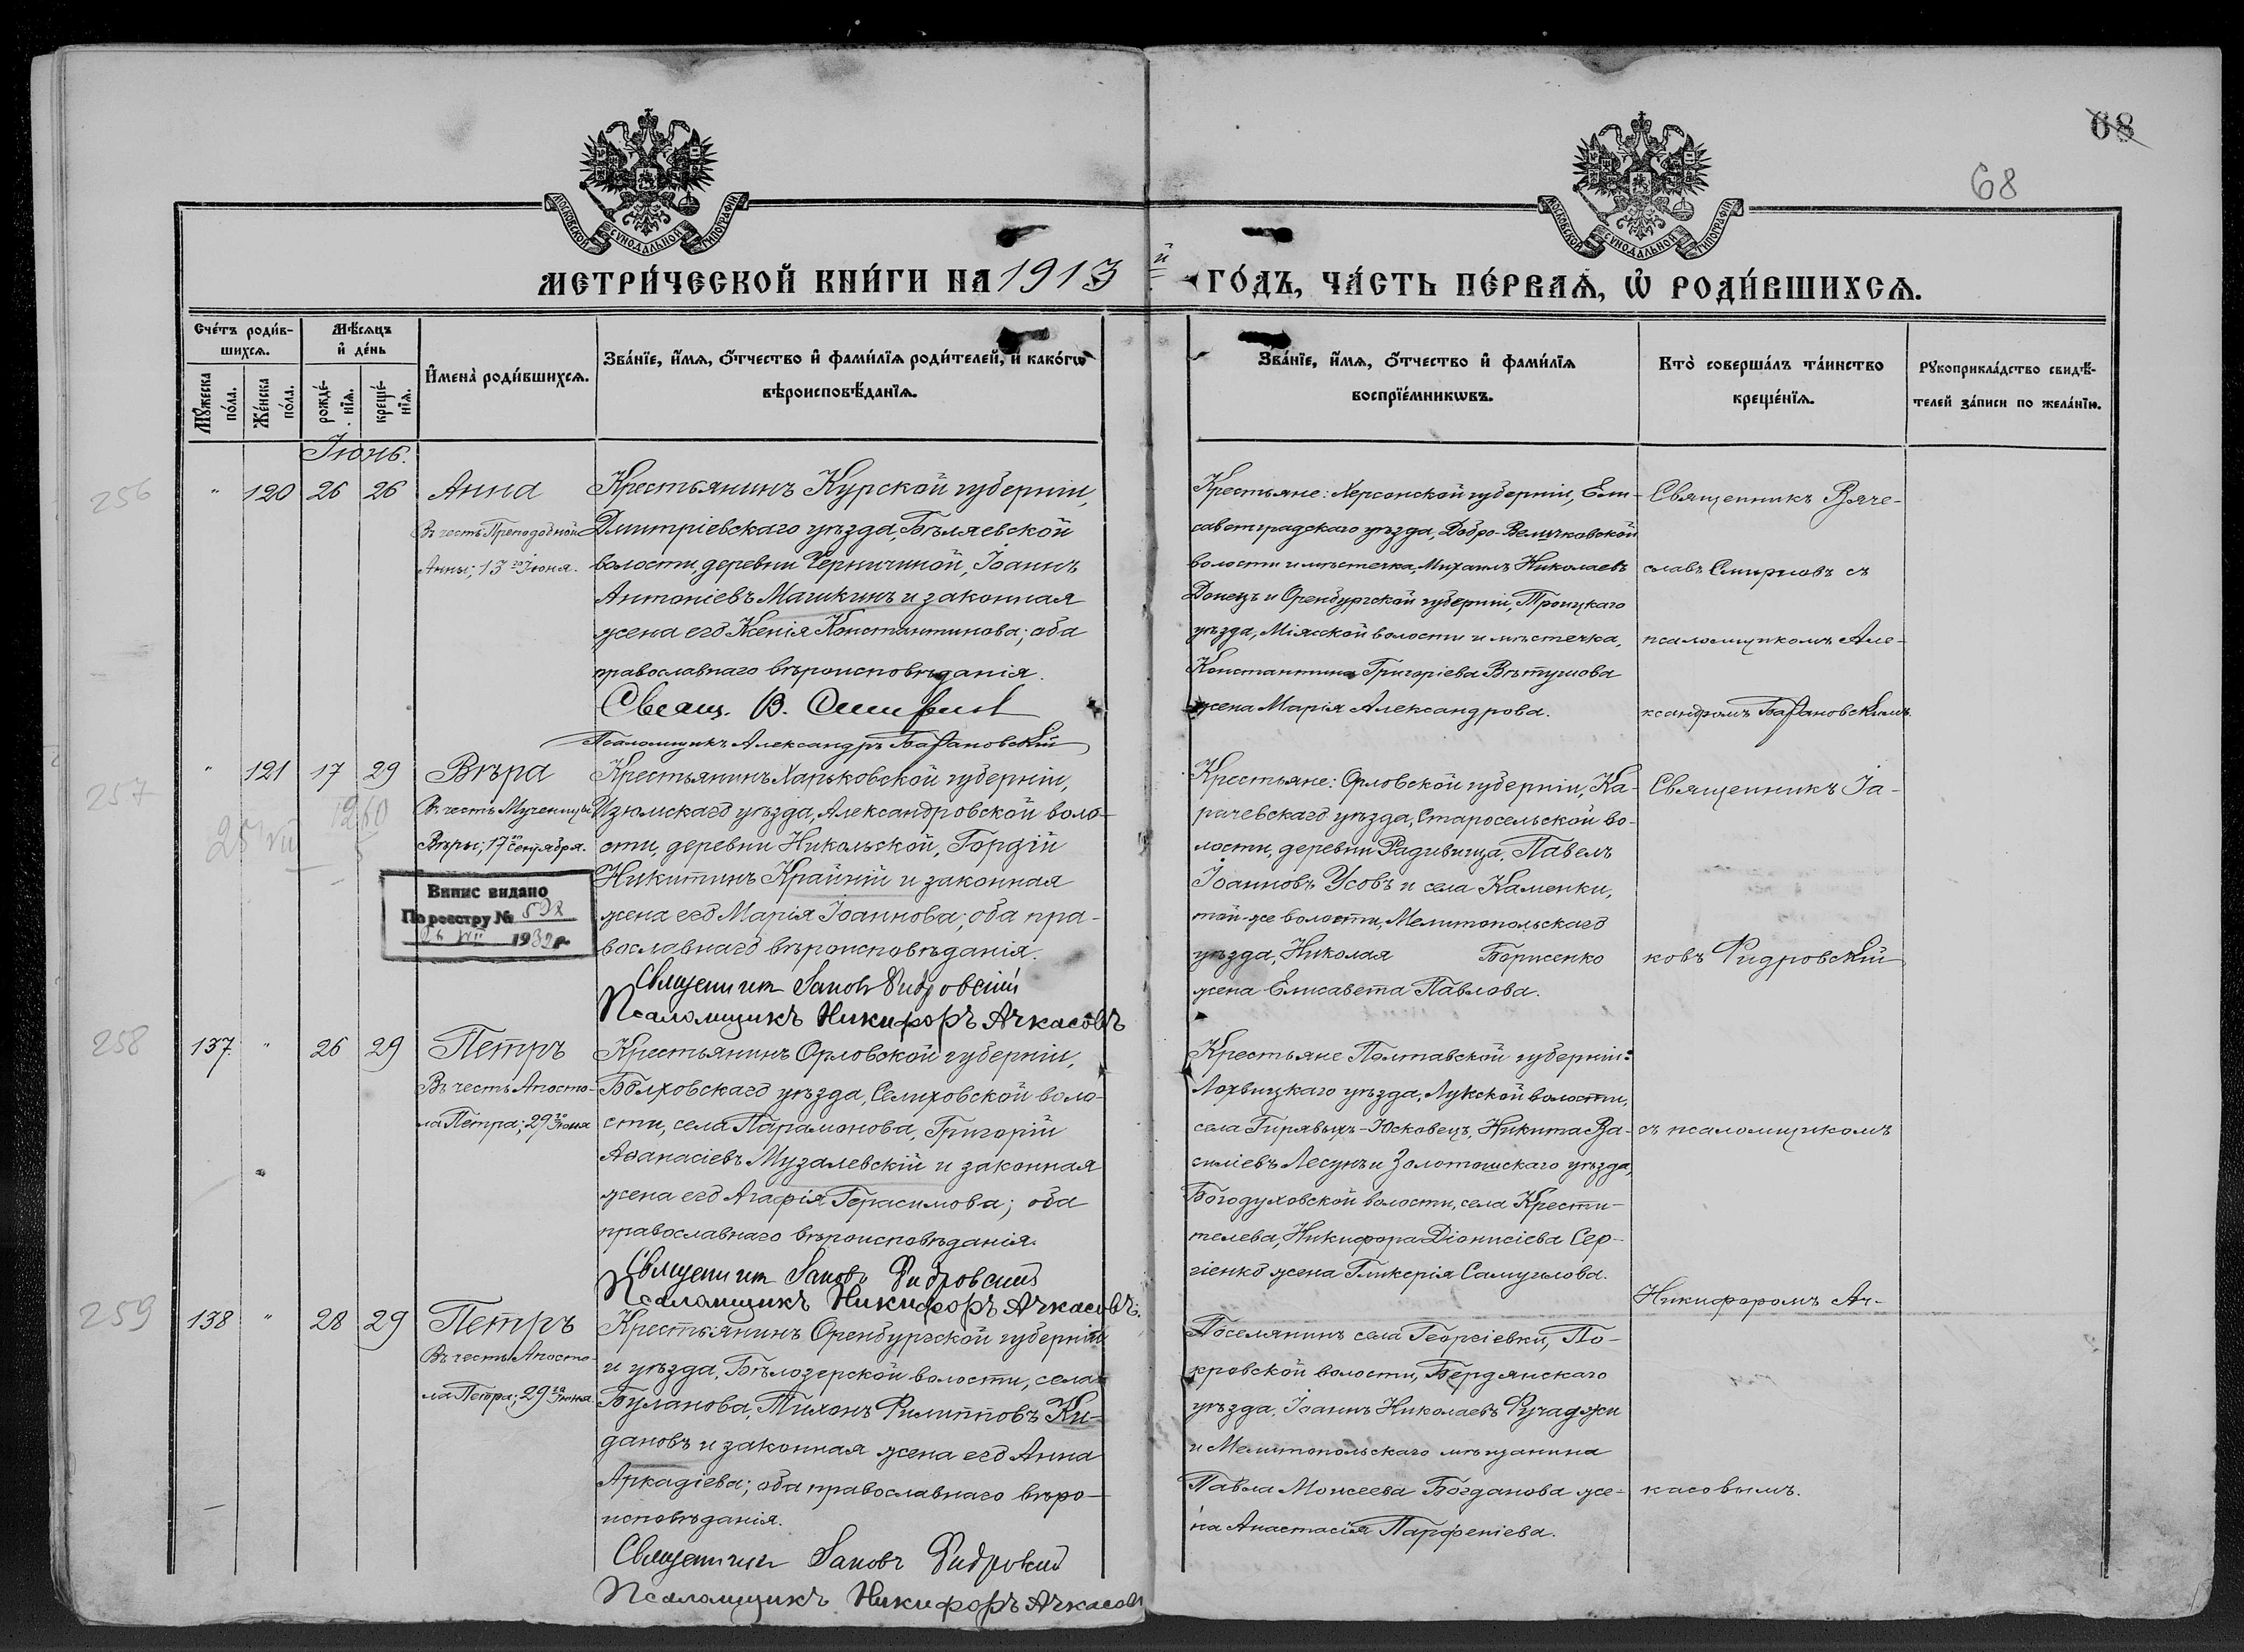 68
68
МОСКОВСКОЙ СѴНОДАЛЬНОЙ ТИПОГРАФІИ
МОСКОВСКОЙ СѴНОДАЛЬНОЙ ТИПОГРАФІИ
МЕТРИ́ЧЕСКОЙ КНИ́ГИ НА 1913 й ГО́ДЪ, ЧА́СТЬ ПЕ́РВАѦ, Ѡ҆ РОДИ́ВШИХСѦ.
Сче́тъ роди́в-
шихсѧ.
Мѣ́сѧцъ
и҆ де́нь
Мꙋ́жеска
по́ла.
Же́нска
по́ла.
рожде́-
нїѧ.
креще́-
нїѧ.
И҆мена̀ роди́вшихсѧ.
Зва́нїе, и҆́мѧ, ѻ҆́тчество и҆ фами́лїѧ роди́телей, и҆ како́гѡ
вѣроисповѣ́данїѧ.
Зва́нїе, и҆́мѧ, ѻ҆́тчество и҆ фами́лїѧ
воспрїе́мникѡвъ.
Кто̀ соверша́лъ та́инство
креще́нїѧ.
Рꙋкоприкла́дство свидѣ́-
телей за́писи по жела́нїю.
Іюнь.
256
" 120 26 26 Анна
Въ честь Преподобной
Анны; 13го Іюня.
Крестьянинъ Курской губерніи,
Дмитріевскаго уѣзда, Бѣляевской
волости, деревни Черничиной, Іоаннъ
Антоніевъ Машкинъ и законная
жена его Ксенія Константинова; оба
православнаго вѣроисповѣданія.
Свящ. В. Смирновъ
Псаломщикъ Александръ Барановскій
Крестьяне: Херсонской губерніи, Ели-
саветградскаго уѣзда, Добро-Величковской
волости и мѣстечка, Михаилъ Николаевъ
Донецъ и Оренбургской губерніи, Троицкаго
уѣзда, Міясской волости и мѣстечка,
Константина Григоріева Вѣтушова
жена Марія Александрова.
Священникъ Вяче-
славъ Смирновъ съ
псаломщикомъ Але-
ксандромъ Барановскимъ.
257
" 121 17 29 Вѣра
Въ честь Мученицы
Вѣры; 17го Сентября.
Випис видано
По реестру №
193
р.
Крестьянинъ Харьковской губерніи,
Изюмскаго уѣзда, Александровской воло-
сти, деревни Никольской, Гордій
Никитинъ Крайній и законная
жена его Марія Іоаннова; оба пра-
вославнаго вѣроисповѣданія.
Священникъ Іаковъ Фидровскій
Псаломщикъ Никифоръ Ачкасовъ
Крестьяне: Орловской губерніи, Ка-
рачевскаго уѣзда, Старосельской во-
лости, деревни Радивища, Павелъ
Іоанновъ Усовъ и села Каменки,
той-же волости, Мелитопольскаго
уѣзда, Николая Борисенко
жена Елисавета Павлова.
Священникъ Іа-
ковъ Фидровскій
258
137 " 26 29 Петръ
Въ честь Апосто-
ла Петра; 29го Іюня
Крестьянинъ Орловской губерніи,
Болховскаго уѣзда, Селиховской воло-
сти, села Парамонова, Григорій
Аѳанасіевъ Музалевскій и законная
жена его Агафія Герасимова; оба
православнаго вѣроисповѣданія.
Священникъ Іаковъ Фидровскій
Псаломщикъ Никифоръ Ачкасовъ.
Крестьяне Полтавской губерніи:
Лохвицкаго уѣзда, Лукской волости,
села Гирявыхъ-Юсковецъ, Никита Ва-
силіевъ Лесунъ и Золотошскаго уѣзда,
Богодуховской волости, села Крести-
телева, Никифора Діонисіева Сер-
гіенко жена Гликерія Самуилова.
съ псаломщикомъ
Никифоромъ Ач-
259
138 " 28 29 Петръ
Въ честь Апосто-
ла Петра; 29го Іюня
Крестьянинъ Оренбургской губерніи
и уѣзда, Бѣлозерской волости, села
Буланова, Тихонъ Филипповъ Ки-
дановъ и законная жена его Анна
Аркадіева; оба православнаго вѣро-
исповѣданія.
Священникъ Іаковъ Фидровскій
Псаломщикъ Никифоръ Ачкасовъ
Поселянинъ села Георгіевки, По-
кровской волости, Бердянскаго
уѣзда, Іоаннъ Николаевъ Ручаджи
и Мелитопольскаго мѣщанина
Павла Моисеева Богданова же-
на Анастасія Парфеніева.
касовымъ.